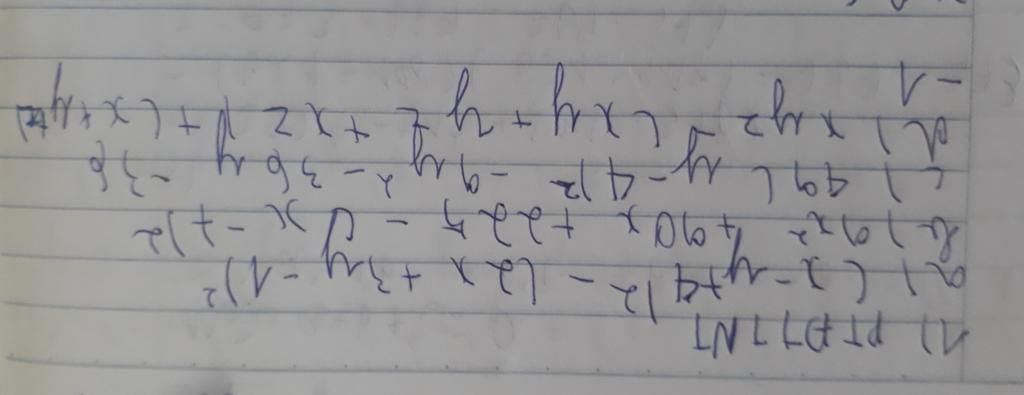 1) PTĐTTNT
a) (x - y + 4)² - (2x + 3y - 1)²
b) 9x² + 90x + 225 - (x - 7)²
c) 49(y - 4)² - 9y² - 36y - 36
d) xyz - (xy + yz + xz) + (x + y + z)
- 1